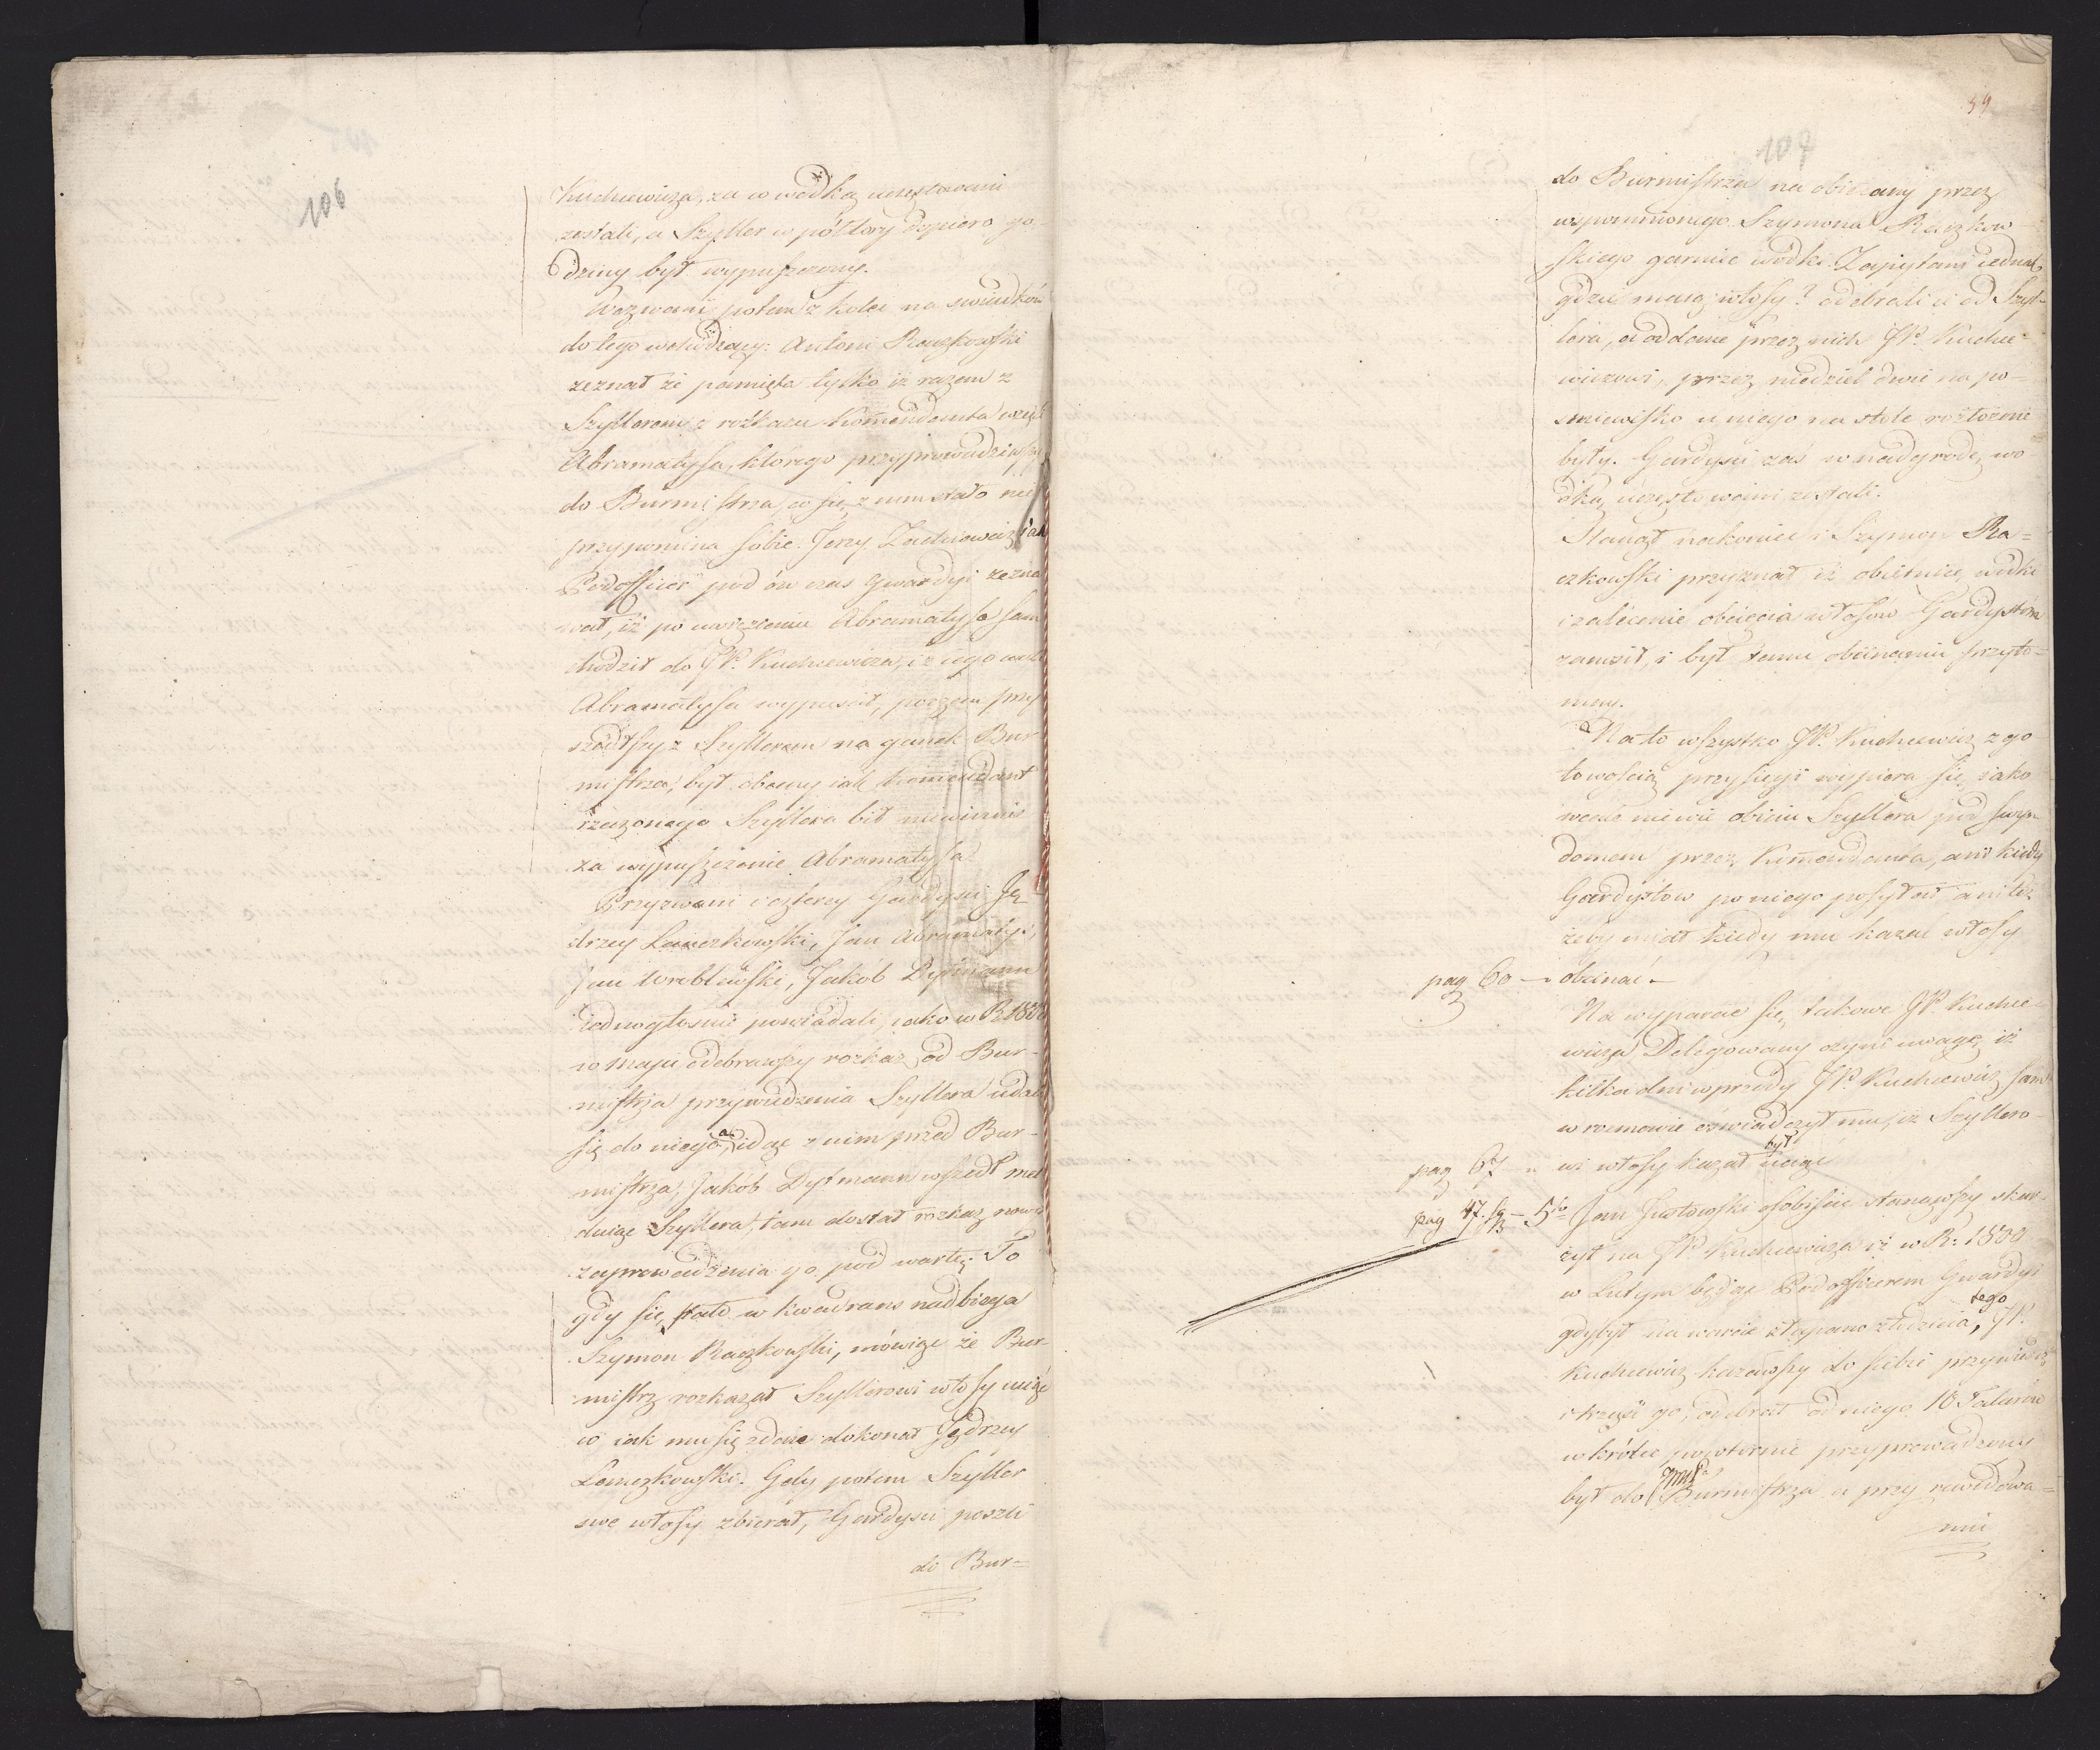 106
Kuchcewicza, za co wodką uczęstowani
zostali, a Szyller w półtory dopiero go-
dziny był wypuszczony.
Wezwani potem z kolei na swiadków
do tego wchodzący: Antoni Raczkowski
zeznał że pamięta tylko iż razem z
Szyllerem z rozkazu Kommendanta wzięli
Abramatysa, ktorego przyprowadziwszy
do Burmistrza, co się z nim stało nie
przypomina sobie. Jerzy Zachiewicz jak
Podofficer pod ów czas Gwardyi zezna
wał, iż po uwięzieniu Abramatysa sam
chodził do JP. Kuchcewicza, i z iego
Abramatysa wypuscił, poczem przy
szedłszy z Szyllerem na ganek Bur
mistrza, był obecny iak Kommendant
rzeczonego Szyllera bił niewinnie
za wypuszczenie Abramatysa.
Przyzwani i czterey Gardysci Ję-
drzey Lenczkowski, Jan Abramatys,
Jan Wroblewski, Jakób Dytmann
iednogłosnie powiadali, iako w R. 1830
w Maju odebrawszy rozkaz od Bur-
mistrza przywiedzenia Szyllera udali
się do niego, a idąc z nim przed Bur-
mistrza, Jakób Dytmann wszedł mel
duiąc Szyllera, tam dostał rozkaz nowy
zaprowadzenia go pod wartę. To
gdy się stało w kwadrans nadbiega
Szymon Raczkowski, mówiąc że Bur-
mistrz rozkazał Szyllerowi włosy uciąć
co iak mu się zdaie dokonał Jędrzey
Lenczkowski. Gdy potem Szyller
swe włosy zbierał, Gardysci poszli
do Bur=
59
107
do Burmistrza na obiecany przez
wspomnionego Szymona Raczkow
skiego garniec wódki. Zapytani iednak
gdzie maią włosy? odebrali ie od Szyl-
lera, a oddane przez nich JP. Kuchce-
wiczowi, przez niedziel dwie na po-
smiewisko u niego na stole rozłożone
były. Gardysci zaś w nadgrodę wo
dką uczęstowani zostali.
Stanął nakoniec i Szymon Ra=
czkowski przyznał iż obietnicę wódki
i zalecenie obcięcia włosów Gardystom
zanosił, i był temu obcinaniu przyto=
mny.
Na to wszystko JP. Kuchcewicz z go
towością przysięgi wypiera się, iako
wcale nie wie obiciu Szyllera pod swym
domem przez Kommendanta, ani kiedy
Gardystow po niego posyłał ani też
żeby miał kiedy mu kazać włosy
pag 60 — obcinać.
Na wyparcie się takowe JP. Kuchce-
wicza Delegowany czyni uwagę iż
kilka dni wprzódy JP. Kuchcewicz sam
w rozmowie oswiadczył mu, iż Szyllero-
pag 67 wi włosy kazał był uciąć
pag 47. 5to Jan Justowski osobiscie stanąwszy skar-
żył na JP. Kuchcewicza iż w R: 1830
w Lutym będąc Podofficerem Gwardyi
gdy był na warcie złapano złodzieia, tego JP.
Kuchcewicz kazawszy do siebie przywiesdź
i trząsć go, odebrał od niego 10 Talarów
wkrótce powtornie przyprowadzony
był do JmP. Burmistrza a przy rewidowa=
niu